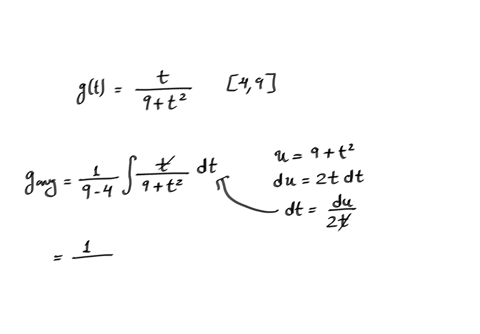 g(t) = t / (9 + t²) [4, 9]
g_avg = 1 / (9 - 4) ∫ t / (9 + t²) dt
u = 9 + t²
du = 2t dt
dt = du / 2t
= 1 /